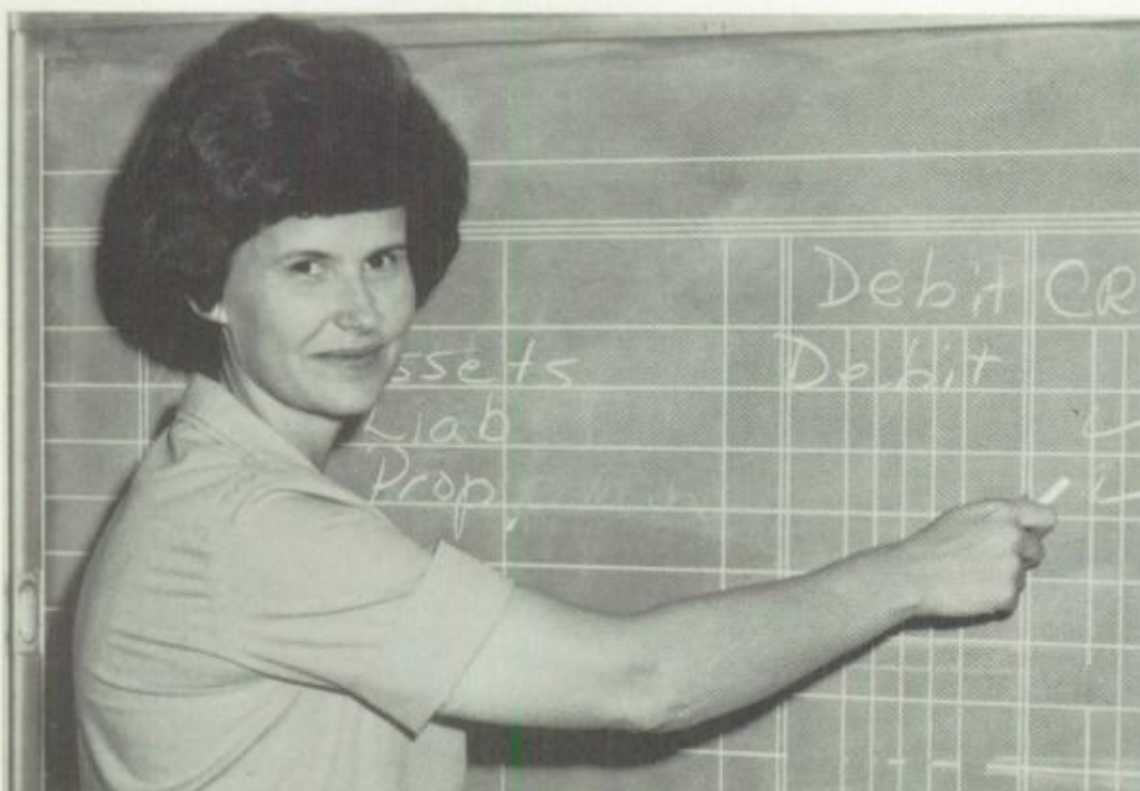 Debit CR
ssets Debit
Liab
Prop.